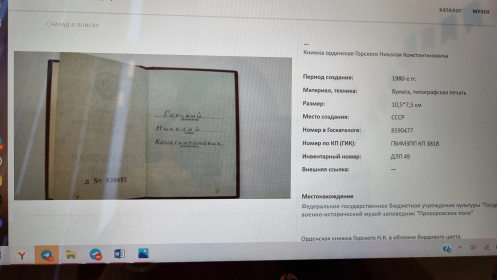 КАТАЛОГ МУЗЕИ
НАЗАД К ПОИСКУ
—
Книжка орденская Горского Николая Константиновича
Период создания: 1980-е гг.
Материал, техника: бумага, типографская печать
Размер: 10,5*7,5 см
Место создания: СССР
Номер в Госкаталоге: 8590477
Номер по КП (ГИК): ГВИМЗПП КП 3818
Инвентарный номер: ДЛП 49
Внешняя ссылка: —
Местонахождение
Федеральное государственное бюджетное учреждение культуры
военно-исторический музей-заповедник "Прохоровское поле"
Орденская книжка Горского Н.К. в обложке бордового цвета
Горский
Николай
Константинович